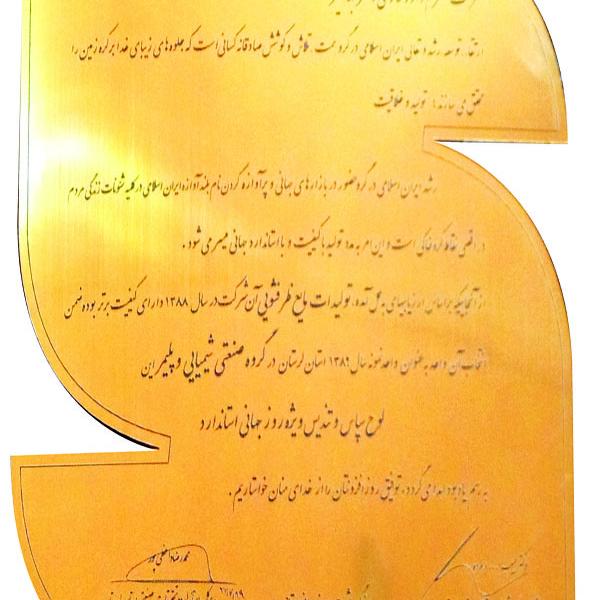 ارتقاء، توسعه رشد و تعالی ایران اسلامی در گرو همت، تلاش و کوشش صادقانه کسانی است که جلوه های زیبای خدا بر کره زمین را
محقق می سازند تولید و خلاقیت
رشد ایران اسلامی در گرو حضور در بازارهای جهانی و پرآوازه کردن نام بلند آوازه ایران اسلامی در کلیه شئونات زندگی مردم
در اقصی نقاط کره خاکی است و این امر به مدد تولید با کیفیت و با استاندارد جهانی میسر می شود .
از آنجاییکه بر اساس ارزیابیهای به عمل آمده، تولیدات مایع ظرفشویی آن شرکت در سال ۱۳۸۸ دارای کیفیت برتر بوده ضمن
انتخاب آن واحد به عنوان واحد نمونه سال ۱۳۸۹ استان لرستان در گروه صنعتی شیمیایی و پلیمر این
لوح سپاس و تندیس ویژه روز جهانی استاندارد
به رسم یادبود اهدا می گردد، توفیق روزافزونتان را از خدای منان خواستاریم .
محمدرضا